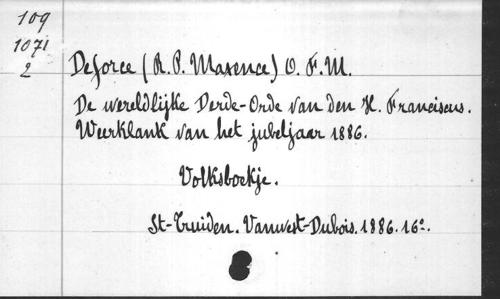 109
1071
2
Deforce (R. P. Maxence) O. F. M.
De wereldlijke Derde-Orde van den H. Franciscus.
Weerklank van het jubeljaar 1886.
Volksboekje.
St-Truiden. Vanwest-Dubois. 1886. 16°.